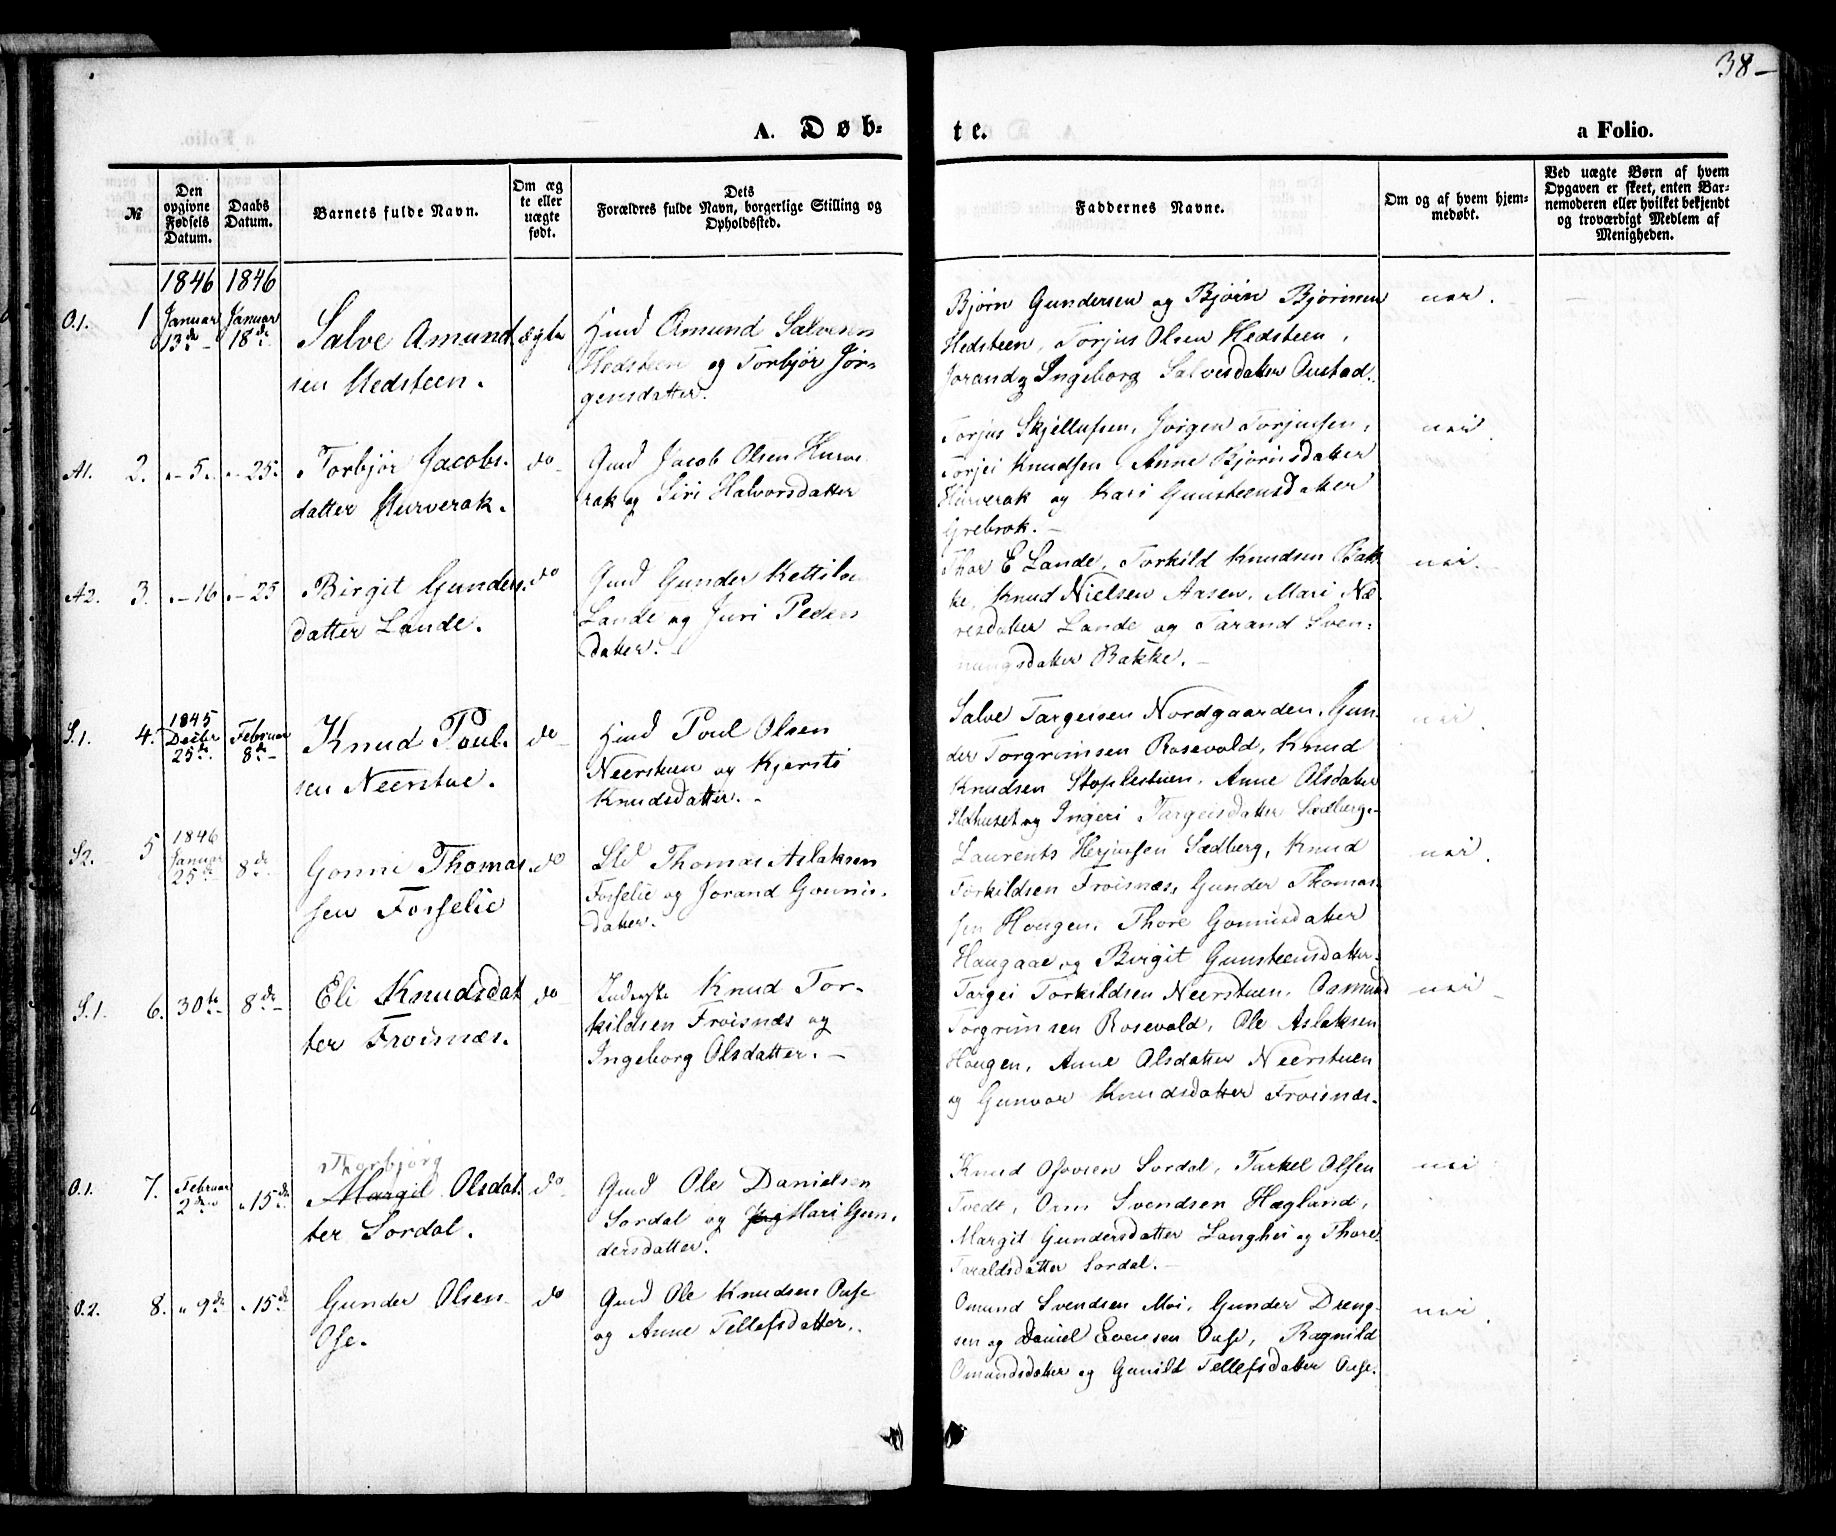 38-
A. Døb-
te.
a Folio.
№
Den opgivne Fødsels Datum.
Daabs Datum.
Barnets fulde Navn.
Om ægte eller uægte født.
Dets Forældres fulde Navn, borgerlige Stilling og Opholdssted.
Faddernes Navne.
Om og af hvem hjemmedøbt.
Ved uægte Børn af hvem Opgaven er skeet, enten Barnemoderen eller hvilket bekjendt og troværdigt Medlem af Menigheden.
1846 1846
O.1. 1 Januar 13de Januar 18de
Salve Amund
sen Hedsteen.
ægte
Amund Salvesen
Hedsteen og Torbjør Jør-
gensdatter.
Bjørn Gundersen og Bjørn Bjørnsen
Hedsteen, Torjus Olsen Hedsteen,
Jorand og Ingeborg Salvesdatter Austad.
nei.
A1. 2. "-5. "-25.
Torbjør Jacobs.
datter Hurverak.
do
Gmd Jacob Olsen Hurve
rak og Siri Halvorsdatter
Torjus Skjellufsen, Jörgen Torjussen,
Torjei Knudsen, Anne Bjørnsdatter
Hurverak og Kari Gunsteensdatter
Grebrok.-
nei
A2. 3. "-16 "-25
Birgit Gunders.
datter Lande.
do
Gmd Gunder Kettils
Lande og Juri Peders
datter.
Thor E Lande, Torkild Knudsen Bak
ke, Knud Nielsen Aasen, Mari Næ
resdatter Lande og Tarand Sven-
nungsdatter Bakke.-
nei.
S.1. 4. 1845 Decbr 25de Februar 8de
Knud Poul.
sen Neerstue.
do
Poul Olsen
Neerstuen og Kjersti
Knudsdatter.-
Salve Targeisen Nordgaarden, Gun
der Torgrimsen Rosevold, Knud
Knudsen Stoplestuen, Anne Olsdatter
og Ingeri Targeisdatter Sædberg.
nei
S2. 5 1846 Januar 25de 8de
Gonni Thomas
sen Fosselie
do
Thomas Aslaksen
Fosselie og Jorand Gonnis.
datter.
Laurents Herjussen Sædberg, Knud
Torkildsen Froisnæs, Gunder Thomas
sen Hougen, Thore Gonnisdatter
Haugaae og Birgit Gunsteensdatter.
nei.
S.1. 6. 30te 8de
Eli Knudsdat
ter Froisnæs.
do
Inderste Knud Tor-
kildsen Froisnæs og
Ingeborg Olsdatter.-
Targei Torkildsen Neerstuen, Osmund
Torgrimsen Rosevold, Ole Aslaksen
Hougen, Anne Olsdatter Neerstuen
og Gunvor Knudsdatter Froisnæs.
nei
O.1. 7. Februar 2den "15de
Thorbjørg
Margit Olsdat.
ter Sordal.
do
Gmd Ole Danielsen
Sordal og Mari Gun.
dersdatter.
Knud Ofovsen Sordal, Turkel Olsen
Tvedt, Orm Svendsen Hægland,
Margit Gundersdatter Langhei og Thore
Taraldsdatter Sordal.-
nei
O.2. 8. " 9de "15de
Gunder Olsen
Ose.
do
Gmd Ole Knudsen Ouse
og Anne Tellefsdatter.
Omund Svendsen Moi, Gunder Dreng-
sen og Daniel Evensen Ouse, Ragnild
Omundsdatter og Gunild Tellefsdatter Ouse.
nei